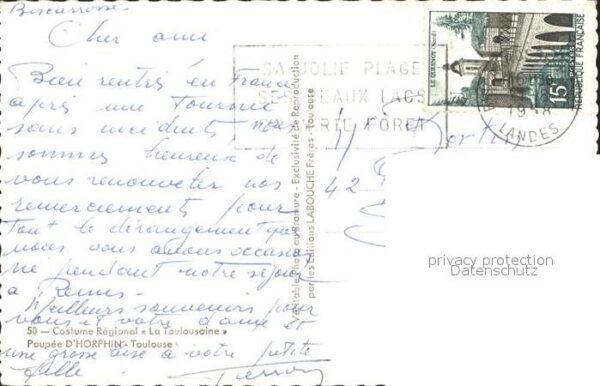 Biscarrosse
Cher ami
Bien rentrés en France
après une Tournée
sans incidents nous
sommes heureux de
vous renouveler nos
remerciements pour
tout le dérangement que
nous vous avons occasion
né pendant notre séjour
a Reims
Meilleurs souvenirs pour
vous et votre dame et
une grosse bise à votre petite
fille
50 — Costume Régional « La Toulousaine »
Poupée D'HORPHIN - Toulouse
Véritable Photo au Bromure - Exclusivité de Reproduction
par les Editions LABOUCHE Frères - Toulouse
SA JOLIE PLAGE
SES BEAUX LACS
FORET
LANDES
LE QUESNOY (Nord)
15F
POSTES
REPUBLIQUE FRANÇAISE
Mr
42
privacy protection
Datenschutz